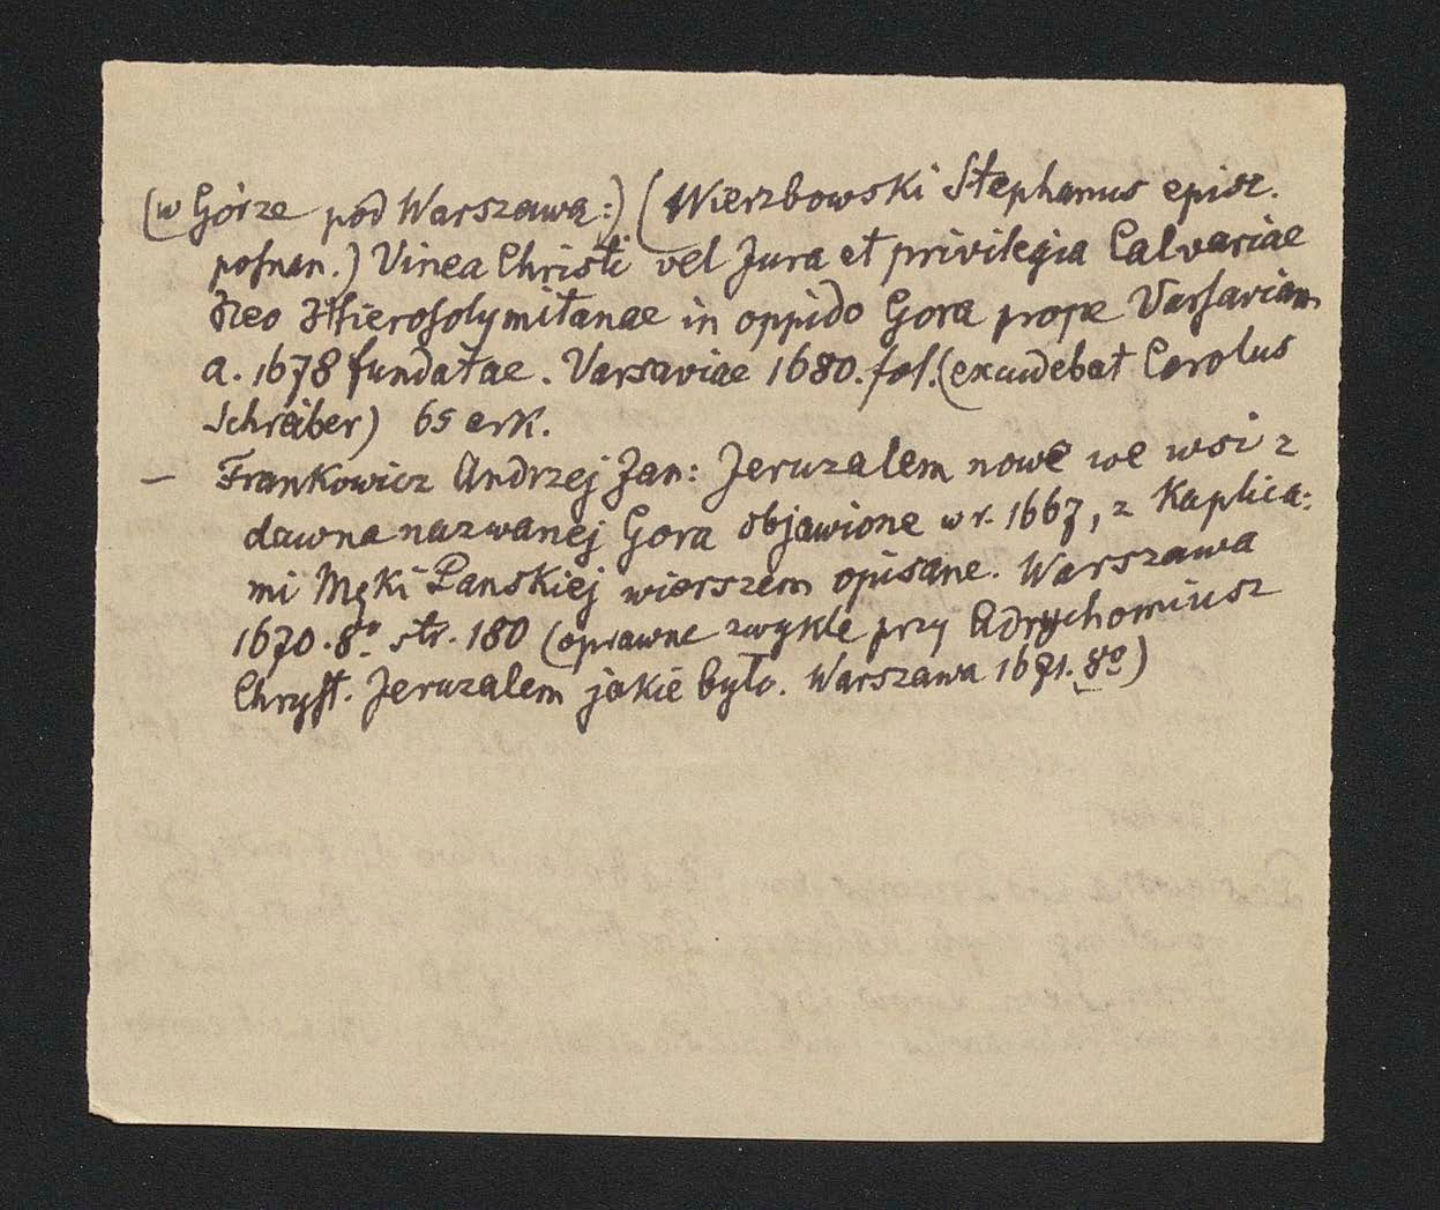 (w Górze pod Warszawą:) (Wierzbowski Stephanus episc.
posnan.) Vinea Christi vel Jura et privilegia Calvariae
Neo Hierosolymitanae in oppido Gora prope Varsaviam
a. 1678 fundatae. Varsaviae 1680. fol. (excudebat Carolus
Schreiber) 65 ark.
— Frankowicz Andrzej Jan: Jeruzalem nowe we wsi z
dawna nazwanej Gora objawione w r. 1667, z Kaplica:
mi Męki Panskiej wierszem opisane. Warszawa
1670. 8o str. 180 (oprawne zwykle przy Adrychomiusz
Chryst. Jeruzalem jakie było. Warszawa 1671. 8o)